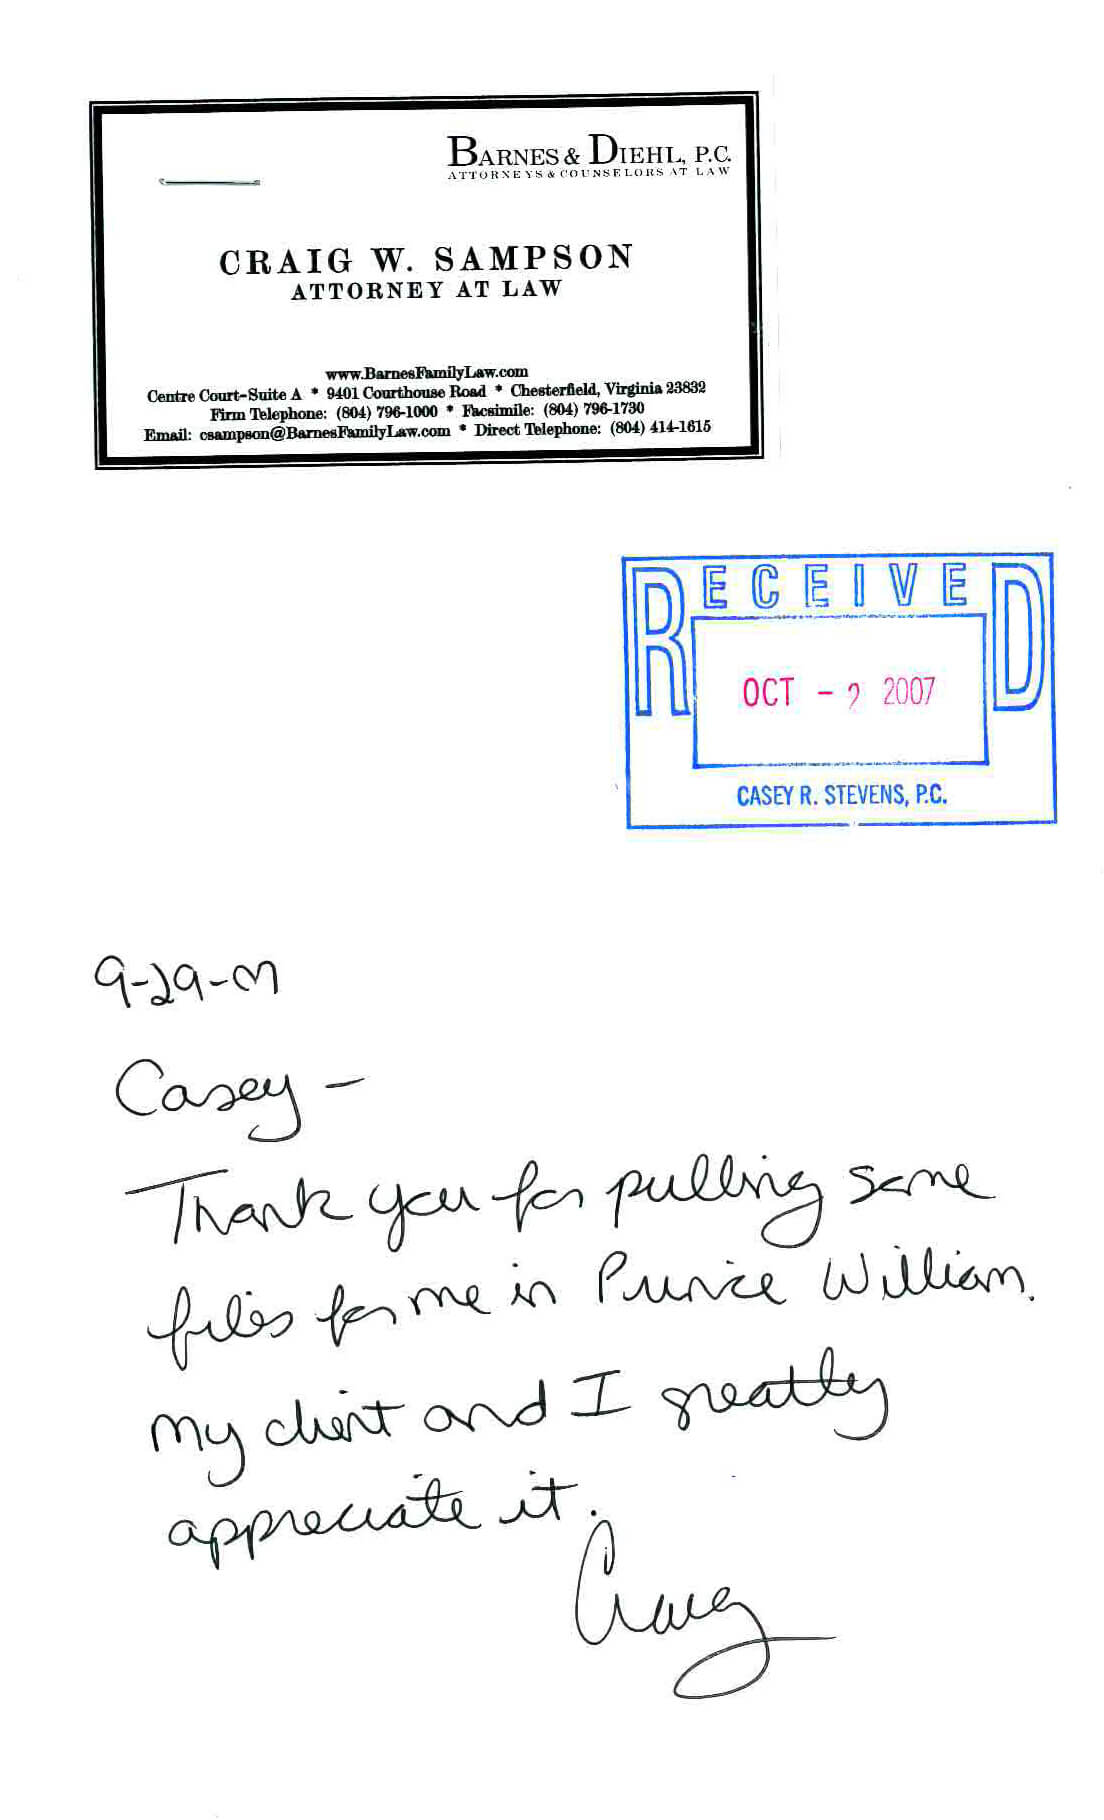 BARNES & DIEHL, P.C.
ATTORNEYS & COUNSELORS AT LAW
CRAIG W. SAMPSON
ATTORNEY AT LAW
www.BarnesFamilyLaw.com
Centre Court-Suite A * 9401 Courthouse Road * Chesterfield, Virginia 23832
Firm Telephone: (804) 796-1000 * Facsimile: (804) 796-1730
Email: csampson@BarnesFamilyLaw.com * Direct Telephone: (804) 414-1615
RECEIVED
OCT - 2 2007
CASEY R. STEVENS, P.C.
9-29-07
Casey -
Thank you for pulling some
files for me in Prince William.
My client and I greatly
appreciate it.
Craig